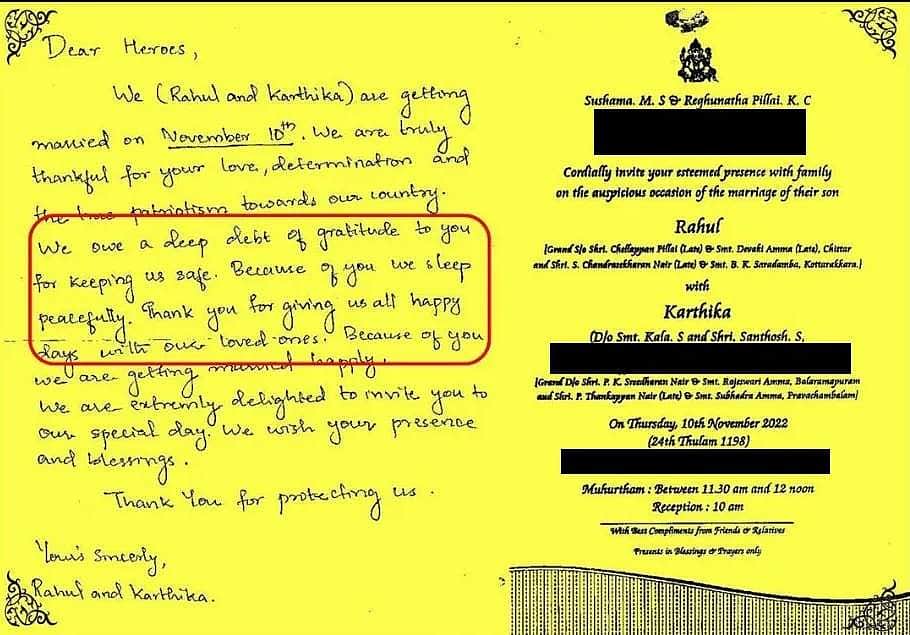 Dear Heroes,
We (Rahul and Karthika) are getting
married on November 10th. We are truly
thankful for your love, determination and
the true patriotism towards our country.
We owe a deep debt of gratitude to you
for keeping us safe. Because of you we sleep
peacefully. Thank you for giving us all happy
days with our loved ones. Because of you
we are getting married happily.
We are extremely delighted to invite you to
our special day. We wish your presence
and blessings.
Thank You for protecting us.
Your's Sincerly,
Rahul and Karthika.
Sushama. M. S & Reghunatha Pillai. K. C
Cordially invite your esteemed presence with family
on the auspicious occasion of the marriage of their son
Rahul
[Grand S/o Shri. Chellappan Pillai (Late) & Smt. Devaki Amma (Late), Chittar
and Shri. S. Chandrasekharan Nair (Late) & Smt. B. K. Saradamba, Kottarakkara.]
with
Karthika
(D/o Smt. Kala. S and Shri. Santhosh. S,
[Grand D/o Shri. P. K. Sreedharan Nair & Smt. Rajeswari Amma, Balaramapuram
and Shri. P. Thankappan Nair (Late) & Smt. Subhadra Amma, Pravachambalam]
On Thursday, 10th November 2022
(24th Thulam 1198)
Muhurtham : Between 11.30 am and 12 noon
Reception : 10 am
With Best Compliments from Friends & Relatives
Presents in Blessings & Prayers only